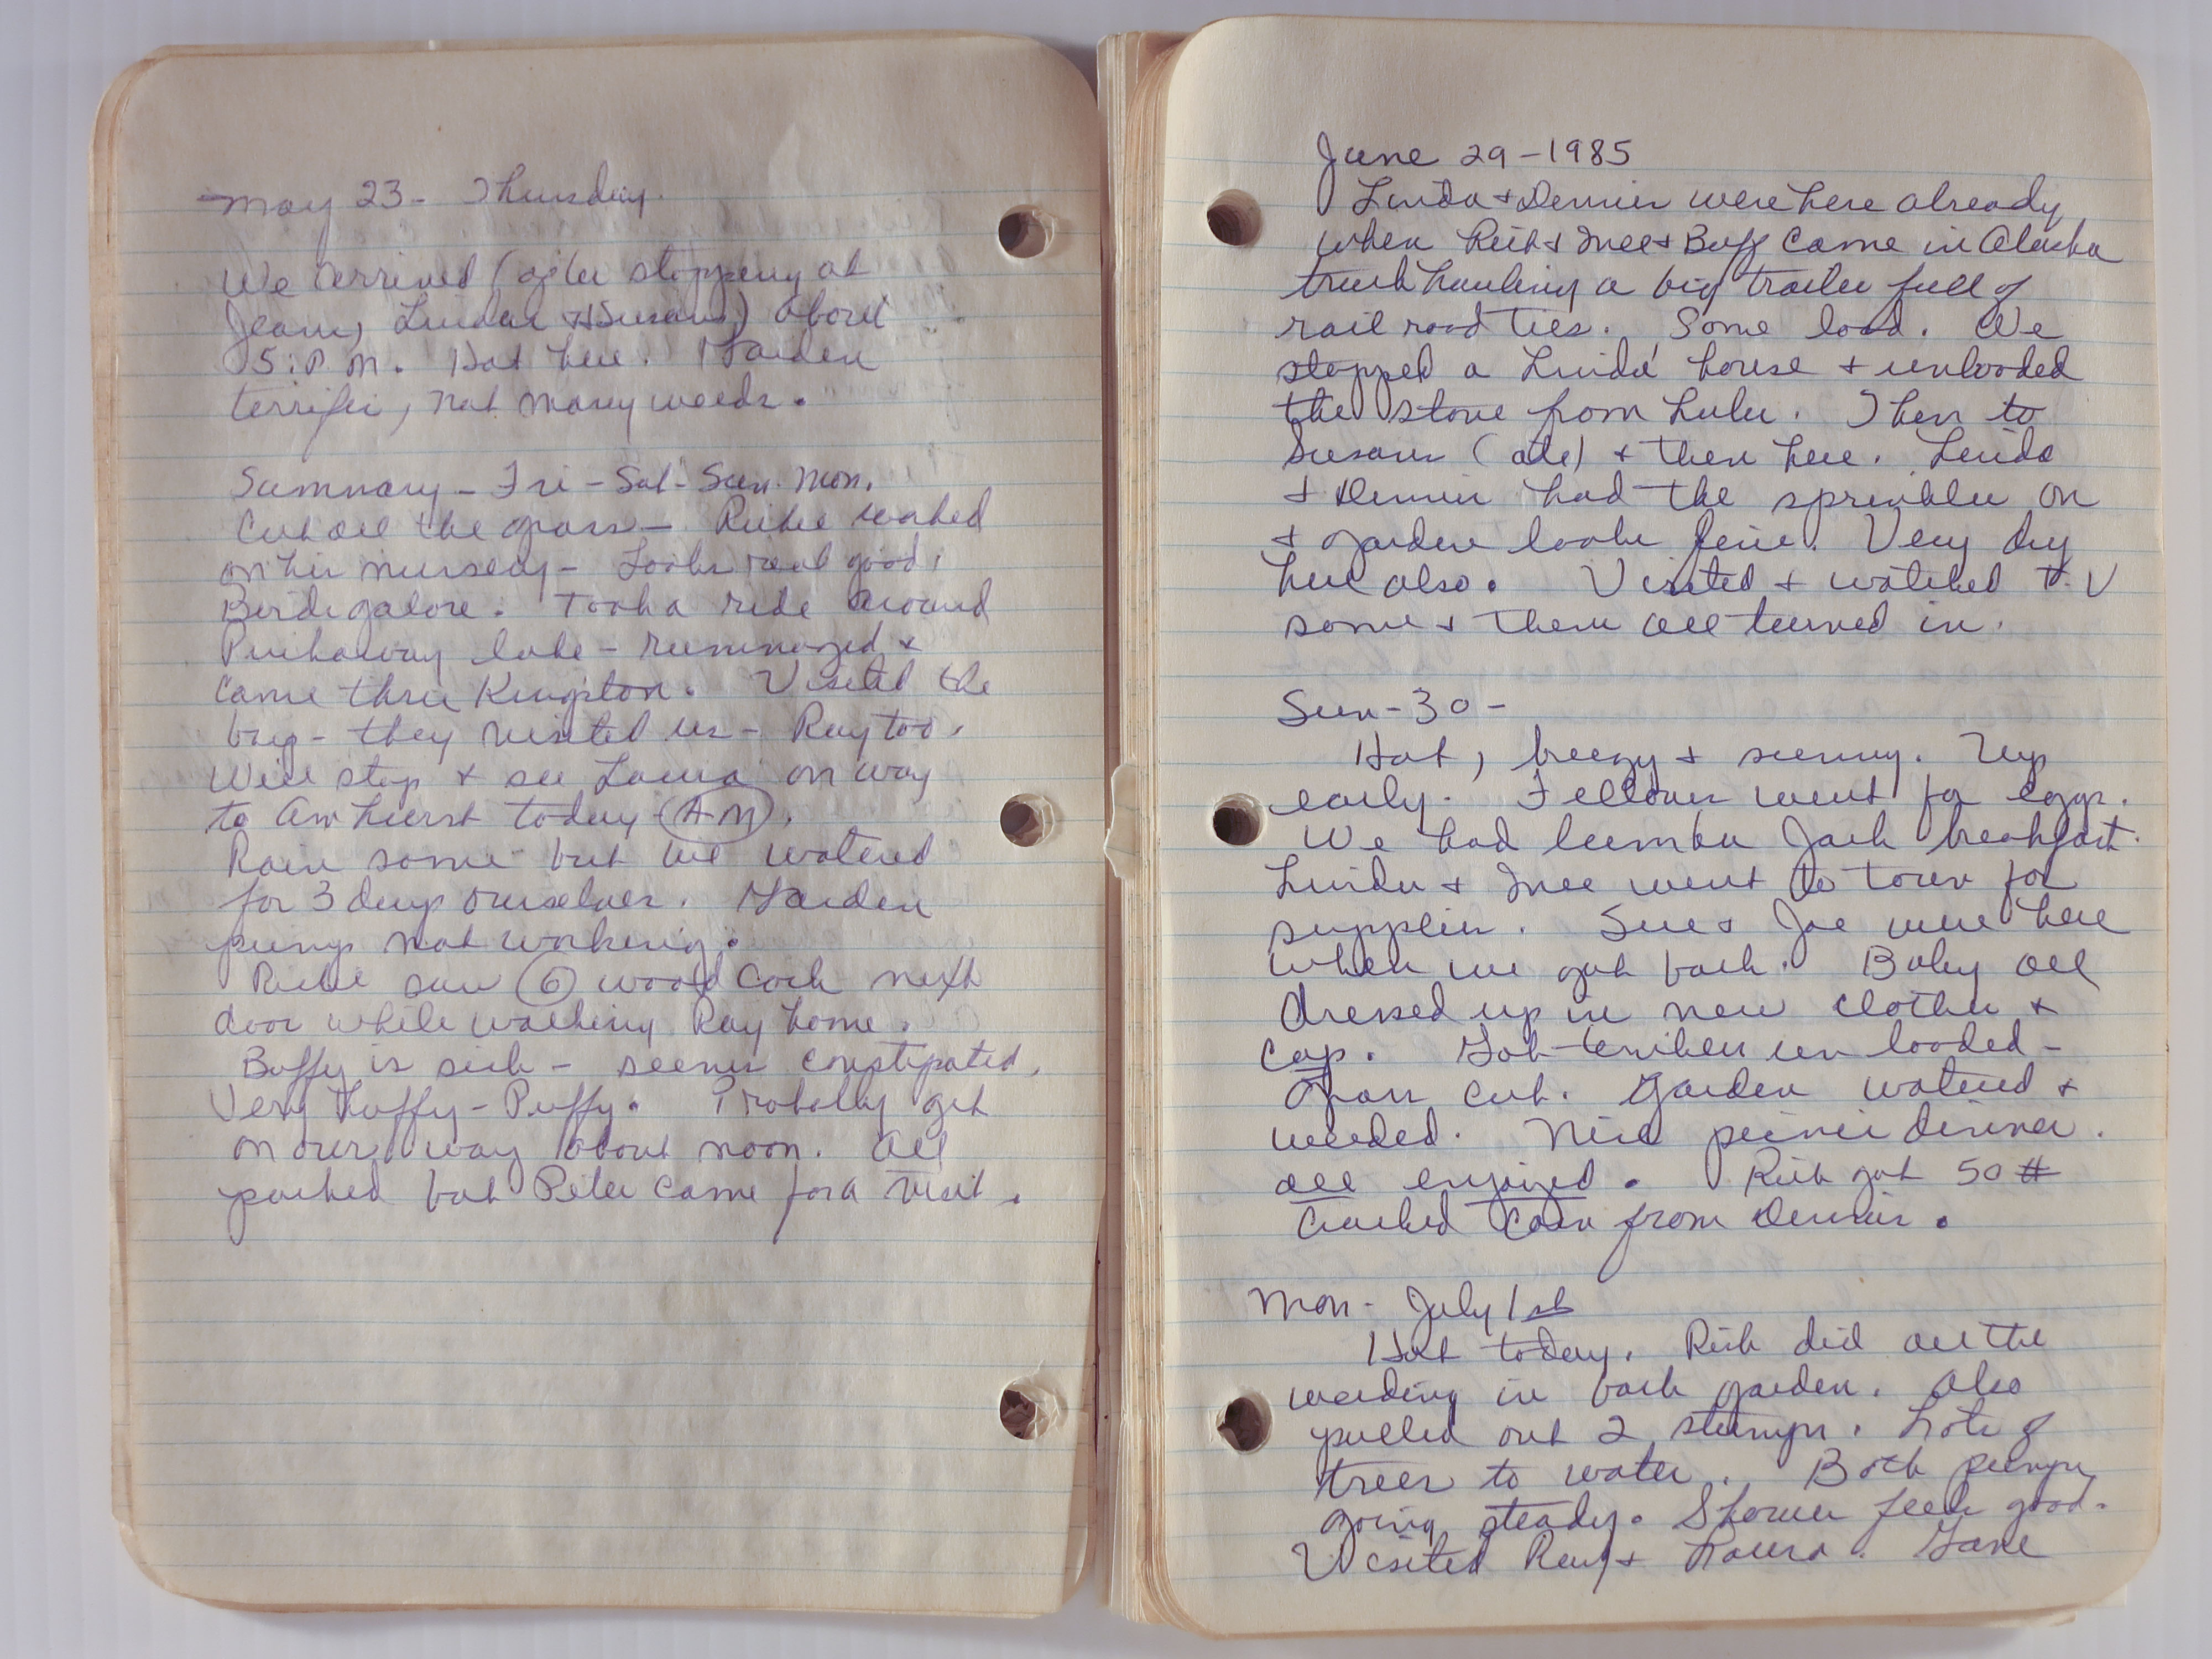 May 23 - Thursday.
We arrived (after stopping at
Jeans, Lindas & Susans) about
5: P.M. Hot here. Garden
terrific, not many weeds.
Summary - Fri - Sat - Sun. Mon.
Cut all the grass - Richie worked
on his nursery - Looks real good.
Birds galore. Took a ride around
Puckaway lake - rummaged &
came thru Kingston. Visited the
boys - they visited us - Ray too.
Will stop & see Laura on way
to Amhurst today (AM).
Rain some but we watered
for 3 days ourselves. Garden
pump not working.
Richie saw (6) wood cock next
door while walking Ray home.
Buffy is sick - seems constipated.
Very huffy - Puffy. Probably get
on our way about noon. All
packed but Peter came for a visit.
June 29 - 1985
Linda & Dennis were here already
when Rich & Mee & Buff came in Alaska
truck hauling a big trailer full of
rail road ties. Some load. We
stopped a Linda' house & unloaded
the stove from Lulu. Then to
Susans (ate) & then here. Linda
& Dennis had the sprinkler on
& garden looks fine. Very dry
here also. Visited & watched T.V
some & then all turned in.
Sun - 30 -
Hot, breezy & sunny. Up
early. Fellows went for eggs.
We had lumber Jack breakfast.
Linda & Mee went to town for
supplies. Sue & Joe were here
when we got back. Baby all
dressed up in new clothes &
cap. Got timbers un loaded -
grass cut. Garden watered &
weeded. Nice picnic dinner.
all enjoyed. Rich got 50 #
cracked corn from Dennis.
Mon - July 1st
Hot today. Rich did all the
weeding in back garden. Also
pulled out 2 stumps. Lots of
trees to water. Both pumps
going steady. Shower feels good.
Visited Ray & Laura. Gave